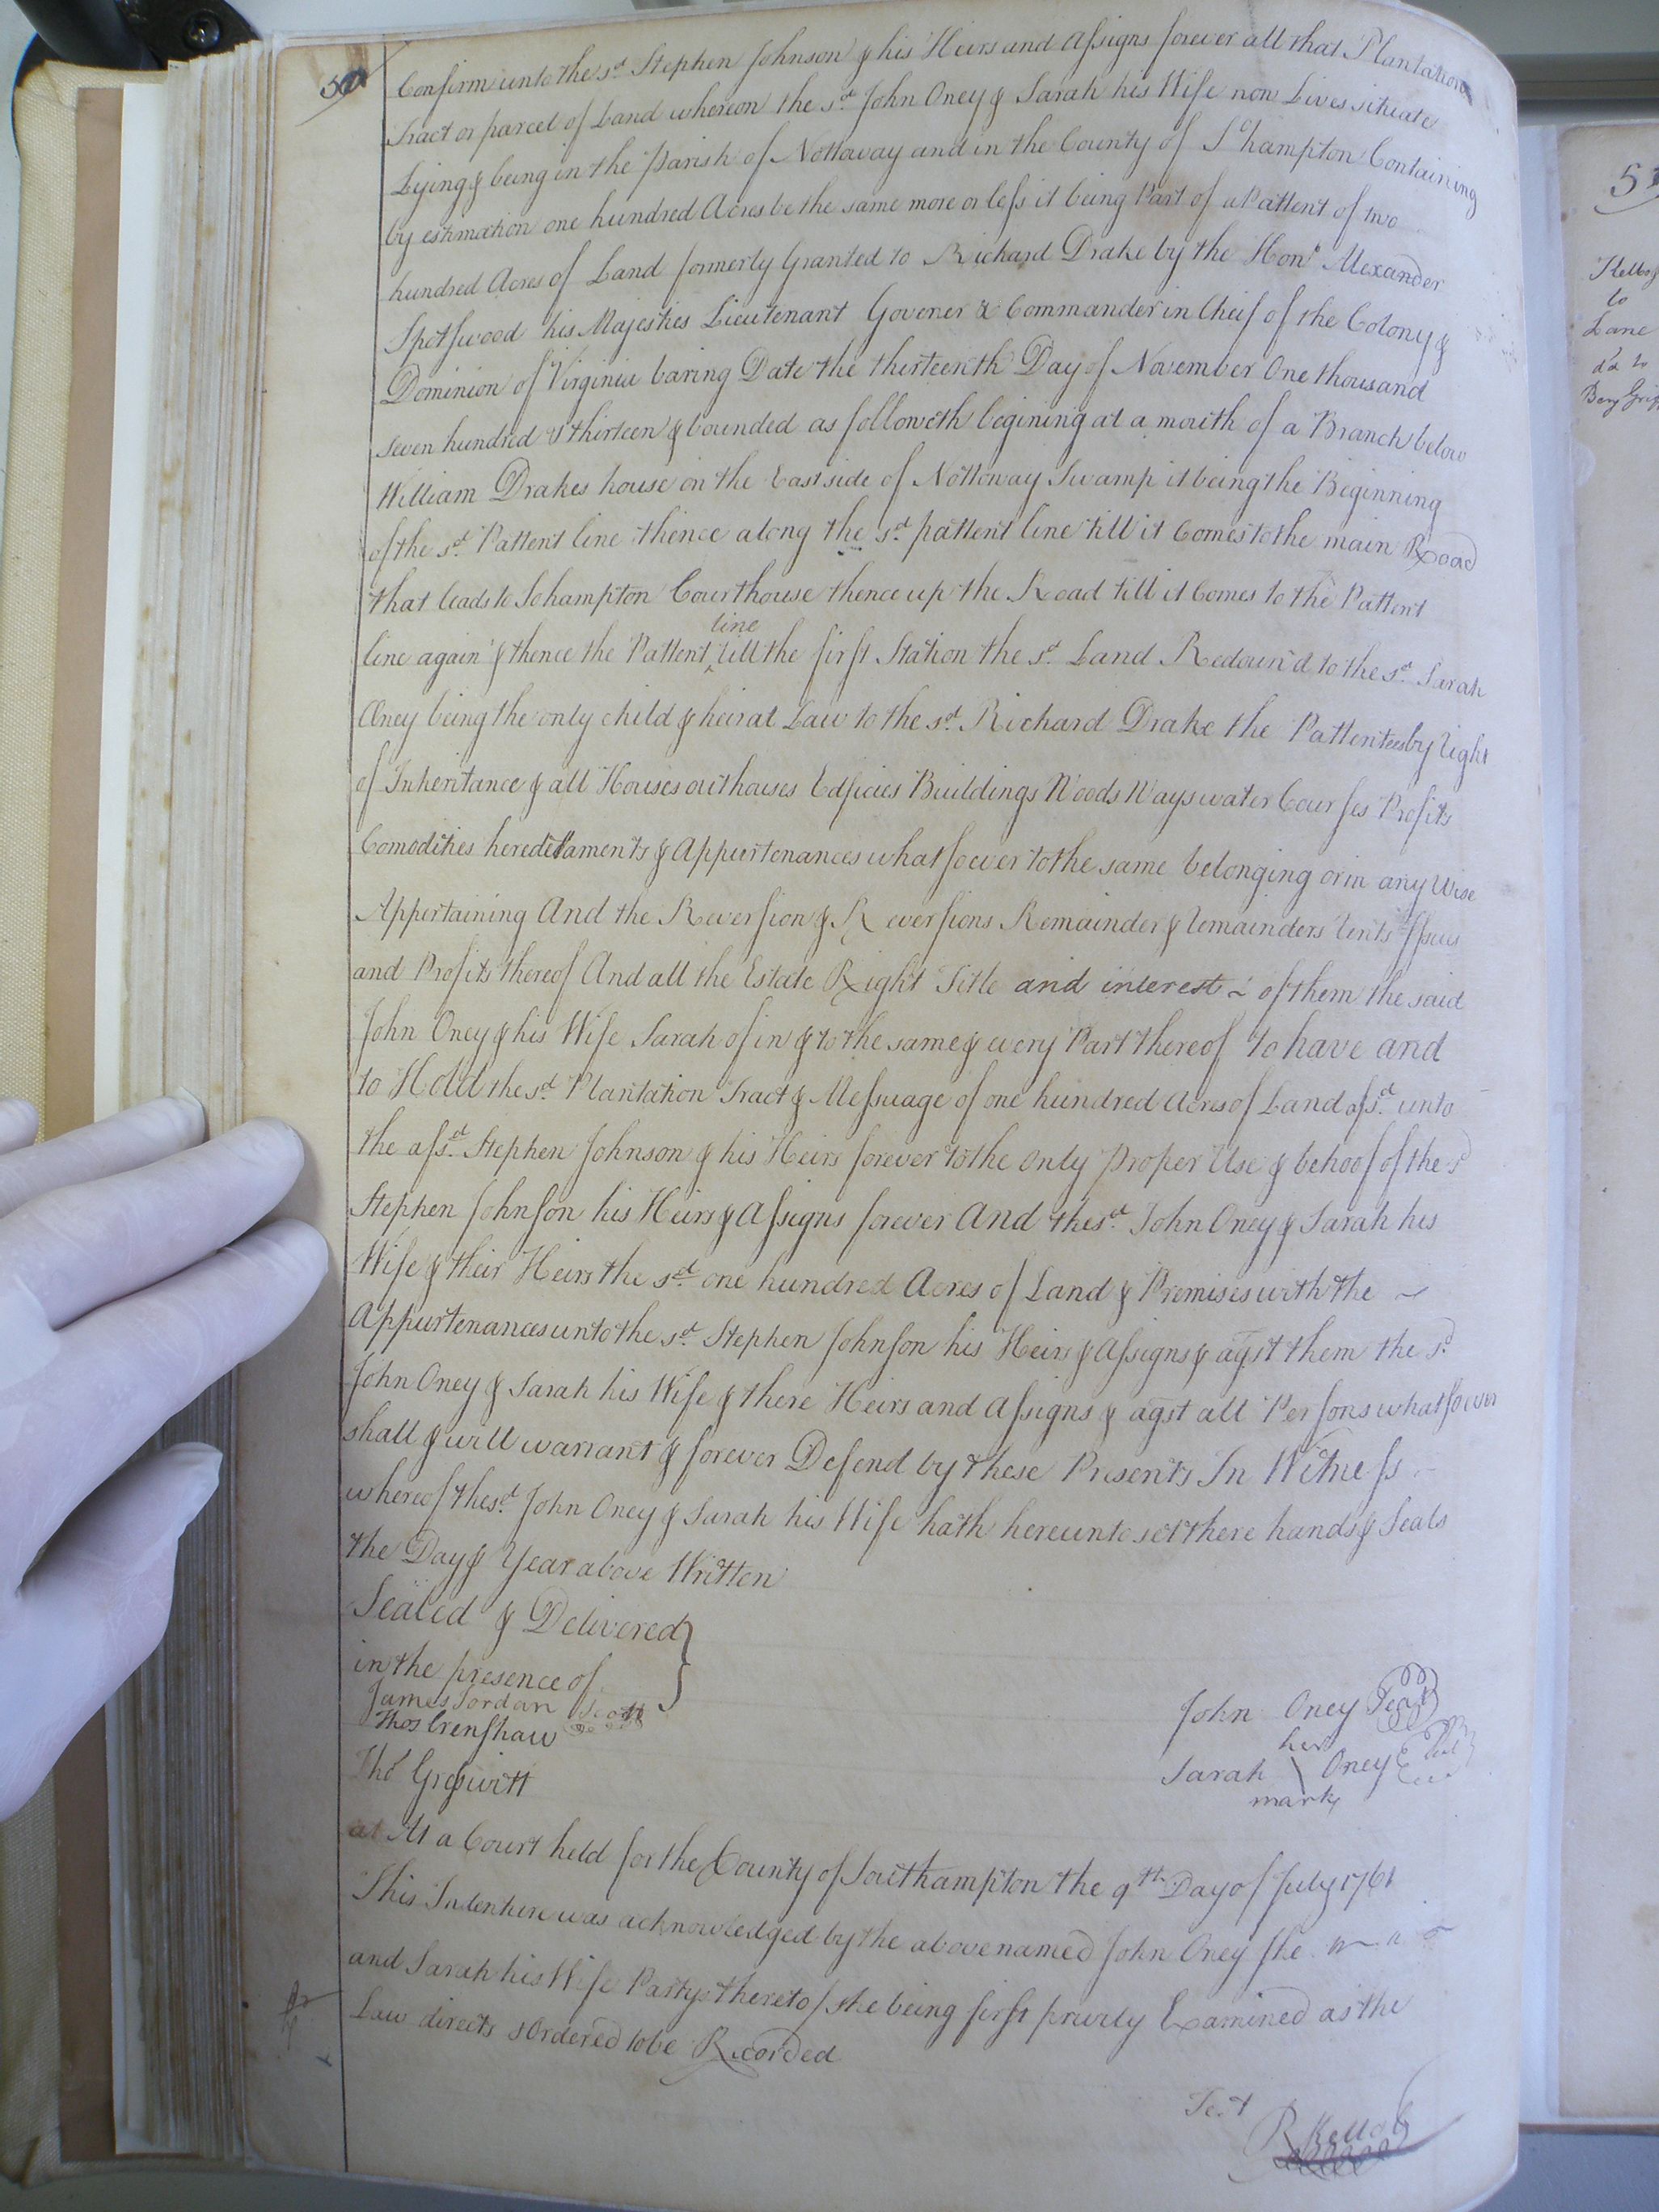 50
Confirm unto the sd. Stephen Johnson & his Heirs and Assigns forever all that Plantation
Tract or parcel of Land whereon the sd. John Oney & Sarah his Wife now Lives situate
Lying & being in the Parish of Nottoway and in the County of Sohampton Containing
by estimation one hundred Acres be the same more or less it being Part of a Pattent of two
hundred Acres of Land formerly Granted to Richard Drake by the Hon. Alexander
Spotswood his Majesties Lieutenant Govener & Commander in Cheif of the Colony &
Dominion of Virginia baring Date the thirteenth Day of November One thousand
seven hundred & thirteen & bounded as followeth begining at a mouth of a Branch below
William Drakes house on the East side of Nottoway Swamp it being the Beginning
of the sd. Pattent line thence along the sd. pattent line till it Comes to the main Road
that leads to Sohampton Courthouse thence up the Road till it Comes to the Pattent
line
line again & thence the Pattent ^ till the first Station the sd. Land Redound to the sd. Sarah
Oney being the only child & heir at Law to the sd. Richard Drake the Pattentees by right
of Inheritance & all Houses outhouses Edficies Buildings Woods Ways water Courses Profits
Comodities hereditaments & Appurtenances whatsoever to the same belonging or in any Wise
Appertaining And the Reversion & Reversions Remainder & remainders rents Issues
and Profits thereof And all the Estate Right Title and interest of them the said
John Oney & his Wife Sarah of in & to the same & every Part thereof to have and
to Hold the sd. Plantation Tract & Messuage of one hundred Acres of Land afsd. unto
the afsd. Stephen Johnson & his Heirs forever to the only proper Use & behoof of the sd
Stephen Johnson his Heirs & Assigns forever And the sd. John Oney & Sarah his
Wife & their Heirs the sd. one hundred Acres of Land & Premises with the
Appurtenances unto the sd. Stephen Johnson his Heirs & Assigns & agst them the sd.
John Oney & Sarah his Wife & there Heirs and Assigns & agst all Persons whatsoever
shall & will warrant & forever Defend by these Presents In Witness
whereof the sd. John Oney & Sarah his Wife hath hereunto set there hands & Seals
the Day & Year above Written
Sealed & Delivered
in the presence of
James Jordan Scott
Thos Crenshaw
Tho Gresswitt
John Oney Seal
her
Sarah \ Oney Seal
mark
At a Court held for the County of Southampton the 9th Day of July 1761
This Indenture was acknowledged by the abovenamed John Oney
and Sarah his Wife Partys thereto she being first privily Examined as the
Law directs & Ordered to be Recorded
Test
R Kello
Kello
to
Lane
Benj Grif